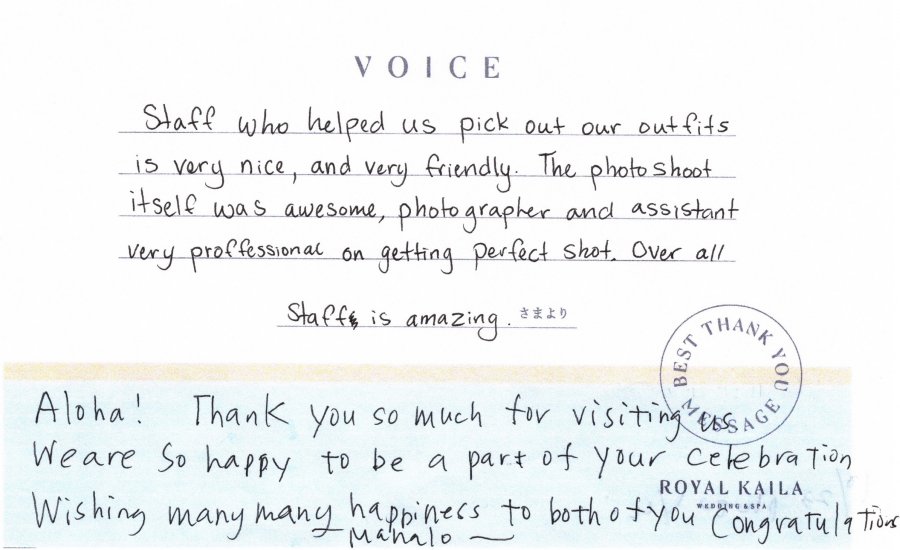 VOICE
Staff who helped us pick out our outfits
is very nice, and very friendly. The photoshoot
itself was awesome, photographer and assistant
very proffessional on getting perfect shot. Over all
Staff is amazing. さまより
BEST THANK YOU MESSAGE
Aloha! Thank you so much for visiting us
We are so happy to be a part of your celebration
ROYAL KAILA
WEDDING & SPA
Wishing many many happiness to both of you Congratulations
Mahalo